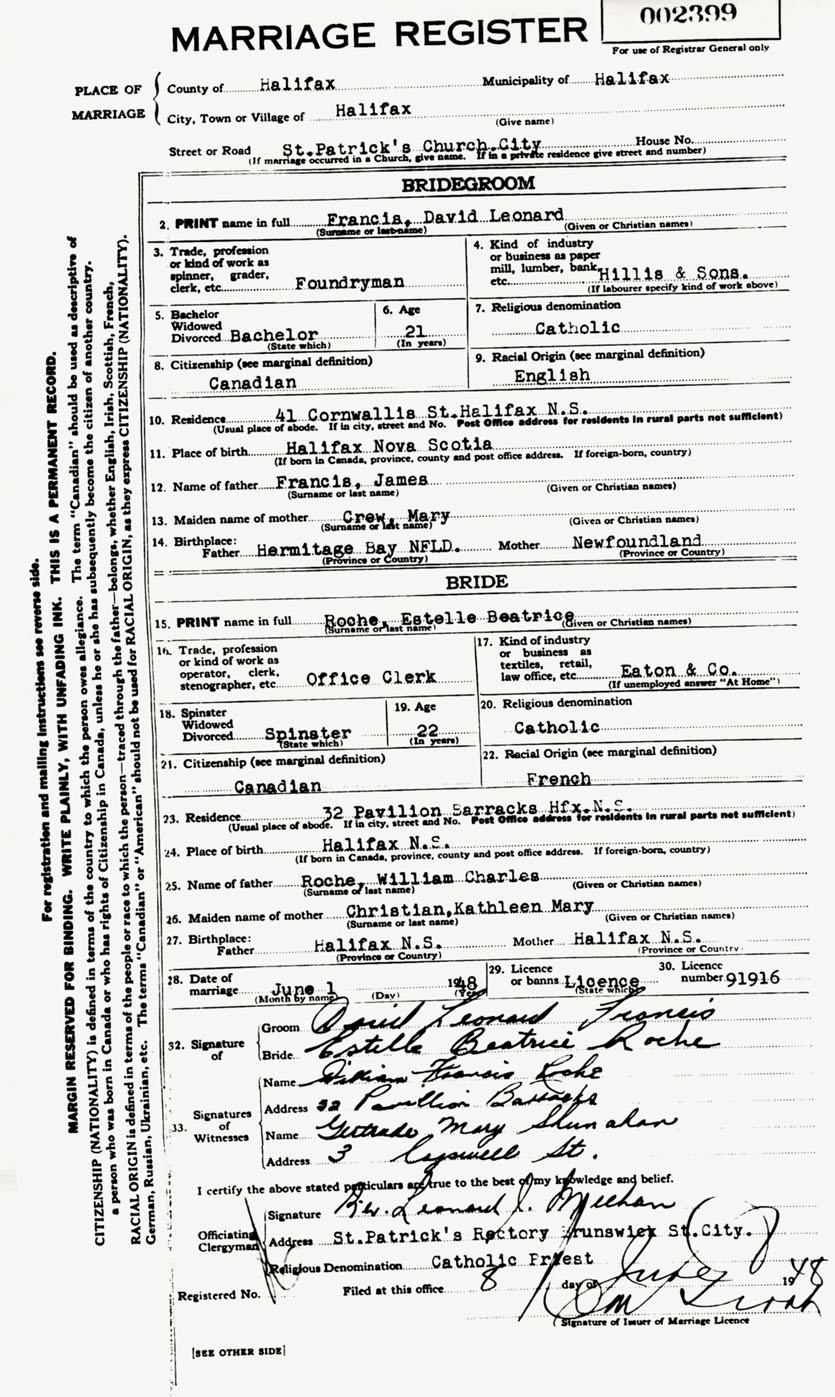 002399
MARRIAGE REGISTER
For use of Registrar General only
PLACE OF MARRIAGE
County of Halifax Municipality of Halifax
City, Town or Village of Halifax
(Give name)
Street or Road St.Patrick's Church.City House No.
(If marriage occurred in a Church, give name. If in a private residence give street and number)
BRIDEGROOM
2. PRINT name in full Francis, David Leonard
(Surname or last name) (Given or Christian names)
3. Trade, profession or kind of work as spinner, grader, clerk, etc. Foundryman
4. Kind of industry or business as paper mill, lumber, bank, etc. Hillis & Sons.
(If labourer specify kind of work above)
5. Bachelor Widowed Divorced Bachelor
(State which)
6. Age 21
(In years)
7. Religious denomination
Catholic
8. Citizenship (see marginal definition)
Canadian
9. Racial Origin (see marginal definition)
English
10. Residence 41 Cornwallis St.Halifax N.S.
(Usual place of abode. If in city, street and No. Post Office address for residents in rural parts not sufficient)
11. Place of birth Halifax Nova Scotia
(If born in Canada, province, county and post office address. If foreign-born, country)
12. Name of father Francis, James
(Surname or last name) (Given or Christian names)
13. Maiden name of mother Crew, Mary
(Surname or last name) (Given or Christian names)
14. Birthplace: Father Hermitage Bay NFLD. Mother Newfoundland
(Province or Country) (Province or Country)
BRIDE
15. PRINT name in full Roche, Estelle Beatrice
(Surname or last name) (Given or Christian names)
16. Trade, profession or kind of work as operator, clerk, stenographer, etc. Office Clerk
17. Kind of industry or business as textiles, retail, law office, etc. Eaton & Co.
(If unemployed answer "At Home")
18. Spinster Widowed Divorced Spinster
(State which)
19. Age 22
(In years)
20. Religious denomination
Catholic
21. Citizenship (see marginal definition)
Canadian
22. Racial Origin (see marginal definition)
French
23. Residence 32 Pavilion Barracks Hfx.N.S.
(Usual place of abode. If in city, street and No. Post Office address for residents in rural parts not sufficient)
24. Place of birth Halifax N.S.
(If born in Canada, province, county and post office address. If foreign-born, country)
25. Name of father Roche, William Charles
(Surname or last name) (Given or Christian names)
26. Maiden name of mother Christian,Kathleen Mary
(Surname or last name) (Given or Christian names)
27. Birthplace: Father Halifax N.S. Mother Halifax N.S.
(Province or Country) (Province or Country)
28. Date of marriage June 1 1948
(Month by name) (Day) (Year)
29. Licence or banns Licence
(State which)
30. Licence number 91916
32. Signature of
Groom David Leonard Francis
Bride Estelle Beatrice Roche
33. Signatures of Witnesses
Name William Francis Roche
Address 32 Pavillion Barracks
Name Gertrude Mary Shunahan
Address 3 Cogswell St.
I certify the above stated particulars are true to the best of my knowledge and belief.
Officiating Clergyman
Signature Rev. Leonard J. Meehan
Address St.Patrick's Rectory Brunswick St.City.
Religious Denomination Catholic Priest
Registered No. Filed at this office 8 day of June 1948
Signature of Issuer of Marriage Licence
[SEE OTHER SIDE]
For registration and mailing instructions see reverse side.
MARGIN RESERVED FOR BINDING. WRITE PLAINLY, WITH UNFADING INK. THIS IS A PERMANENT RECORD.
CITIZENSHIP (NATIONALITY) is defined in terms of the country to which the person owes allegiance. The term "Canadian" should be used as descriptive of
a person who was born in Canada or who has rights of Citizenship in Canada, unless he or she has subsequently become the citizen of another country.
RACIAL ORIGIN is defined in terms of the people or race to which the person—traced through the father—belongs, whether English, Irish, Scottish, French,
German, Russian, Ukrainian, etc. The terms "Canadian" or "American" should not be used for RACIAL ORIGIN, as they express CITIZENSHIP (NATIONALITY).